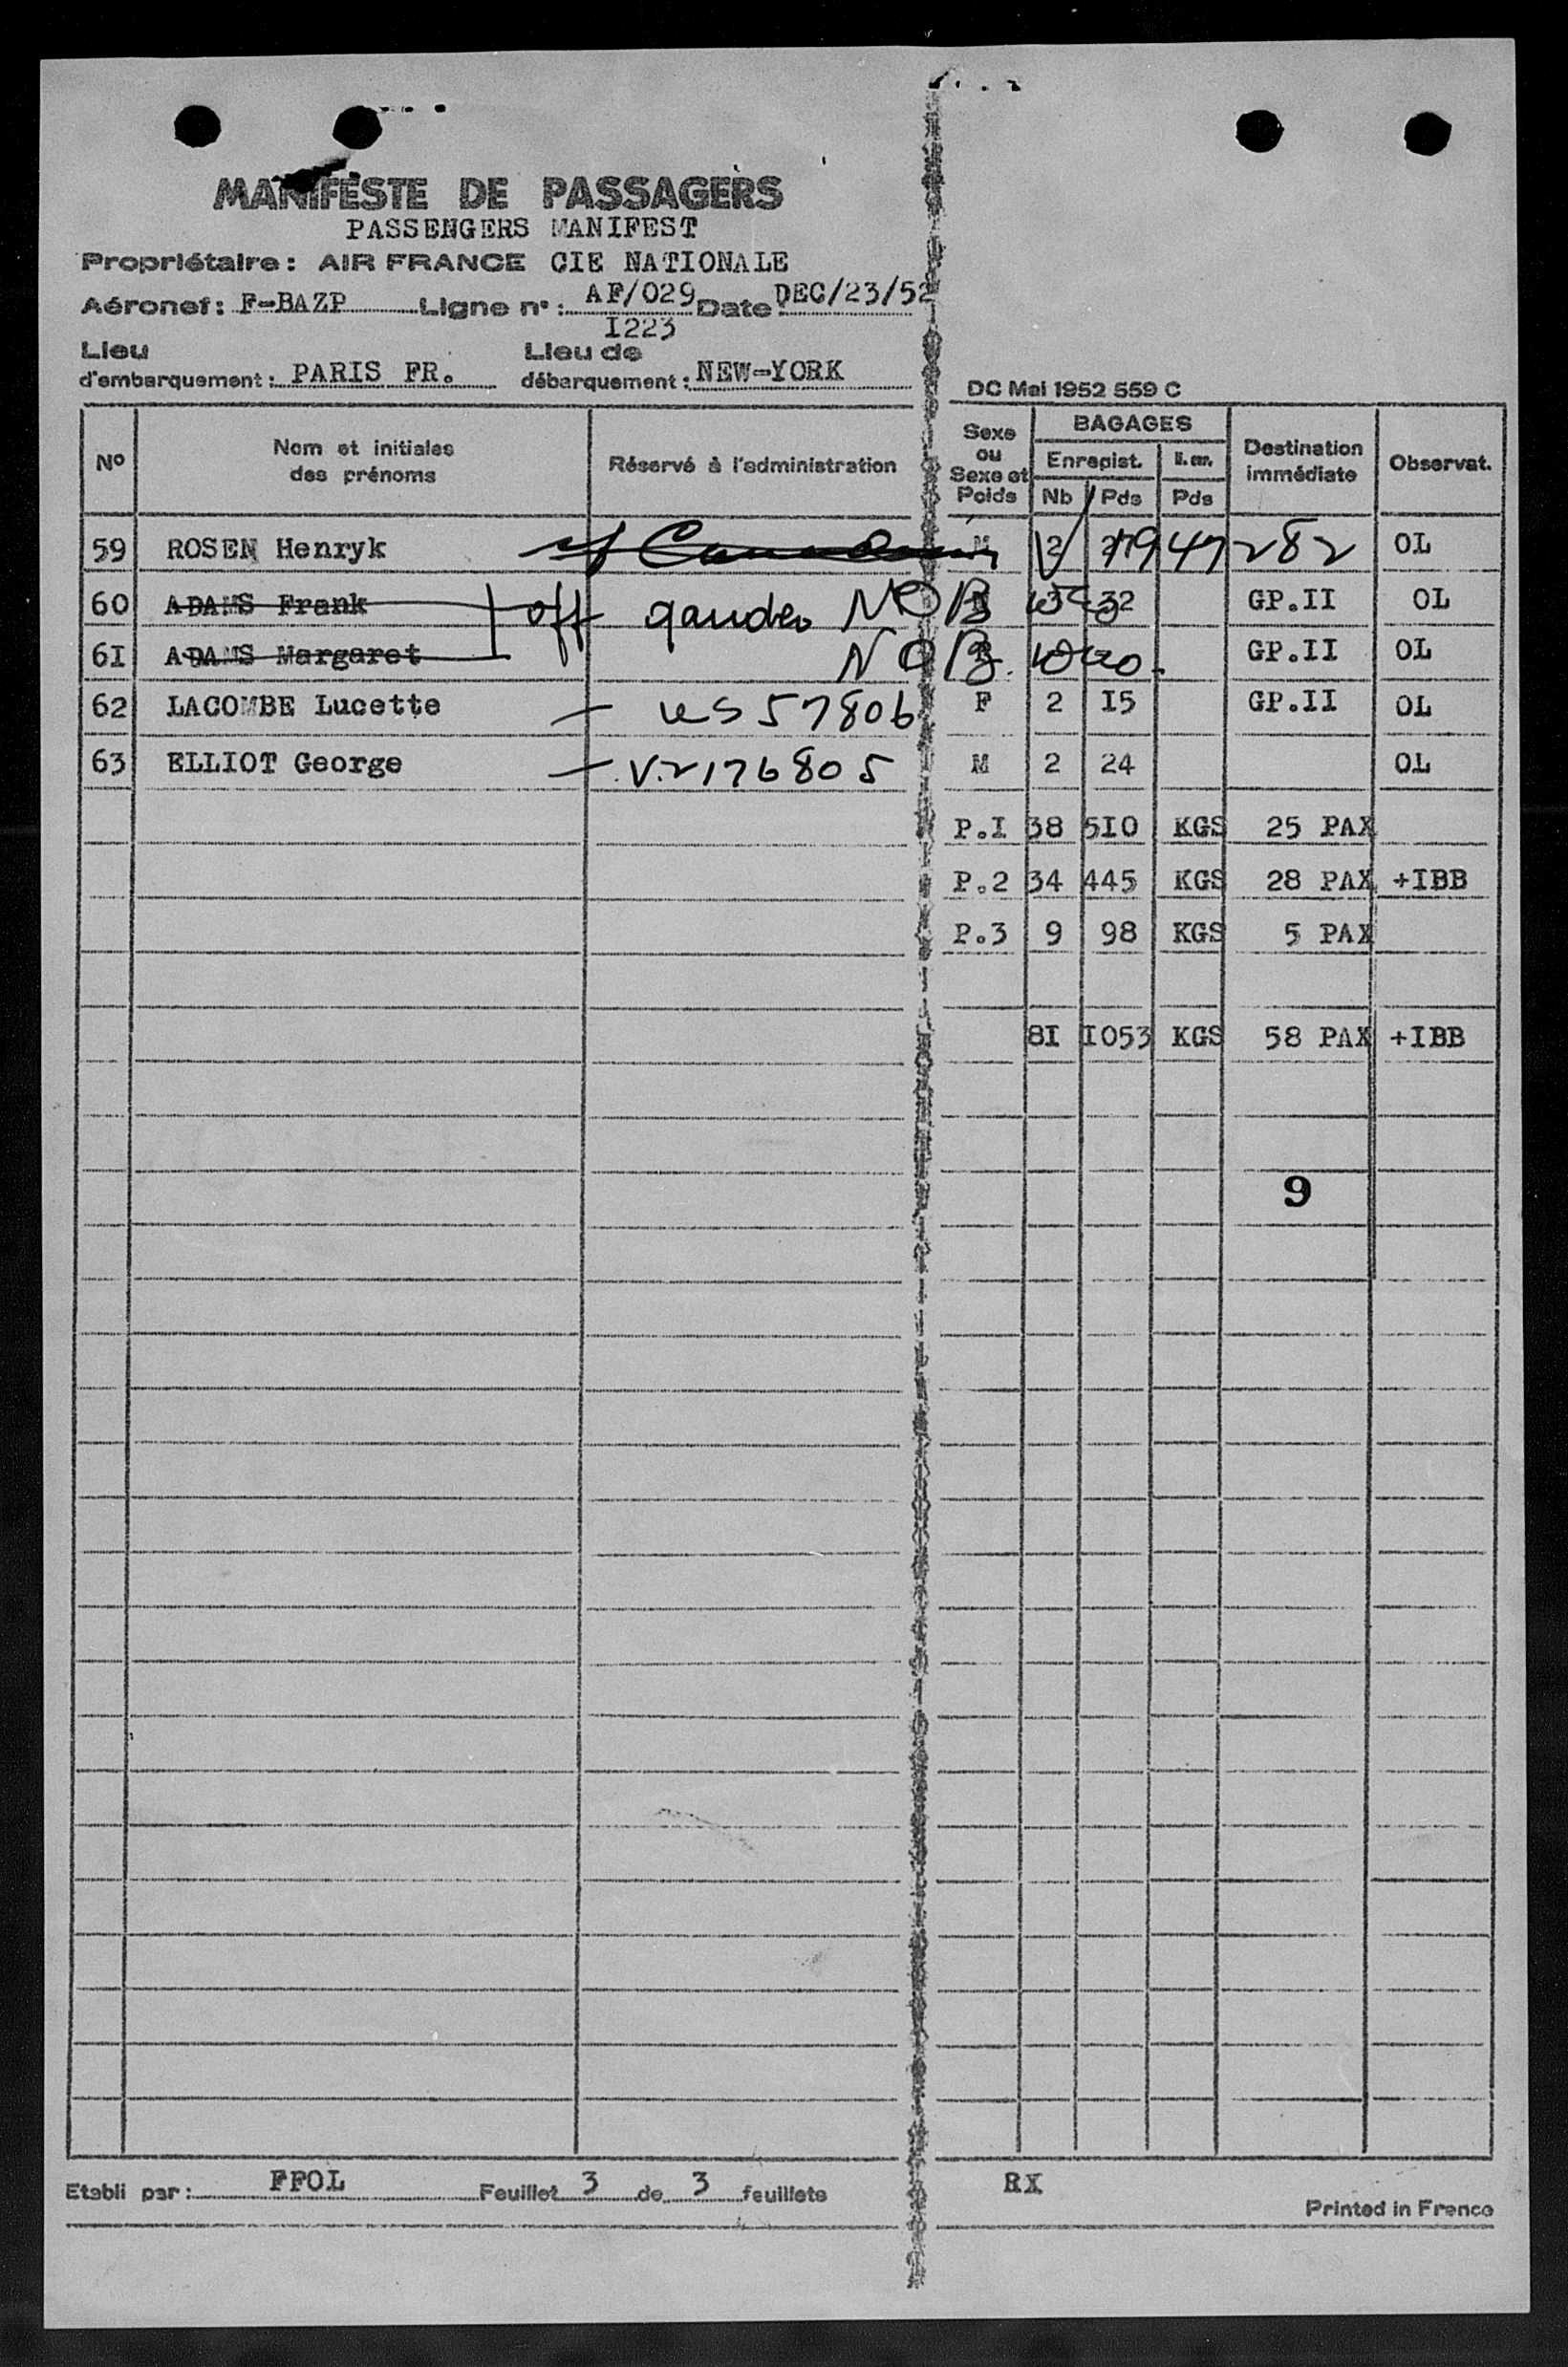 MANIFESTE DE PASSAGERS
PASSENGERS MANIFEST
Propriétaire: AIR FRANCE CIE NATIONALE
Aéronef: F-BAZP Ligne n°: AF/029 Date DEC/23/52
I223
Lieu d'embarquement: PARIS FR. Lieu de débarquement: NEW-YORK
DC Mai 1952 559 C
Nº Nom et initiales des prénoms Réservé à l'administration Sexe ou Sexe et Poids BAGAGES Enregist. Nb Pds Pds Destination immédiate Observat.
59 ROSEN Henryk M 2 V 7947282 OL
60 ADAMS Frank off gander NOB 32 GP.II OL
6I ADAMS Margaret NOB. GP.II OL
62 LACOMBE Lucette – us 57806 F 2 I5 GP.II OL
63 ELLIOT George – V.2176805 M 2 24 OL
P.I 38 5I0 KGS 25 PAX
P.2 34 445 KGS 28 PAX +IBB
P.3 9 98 KGS 5 PAX
8I I053 KGS 58 PAX +IBB
9
Etabli par: FPOL Feuillet 3 de 3 feuillets RX
Printed in France